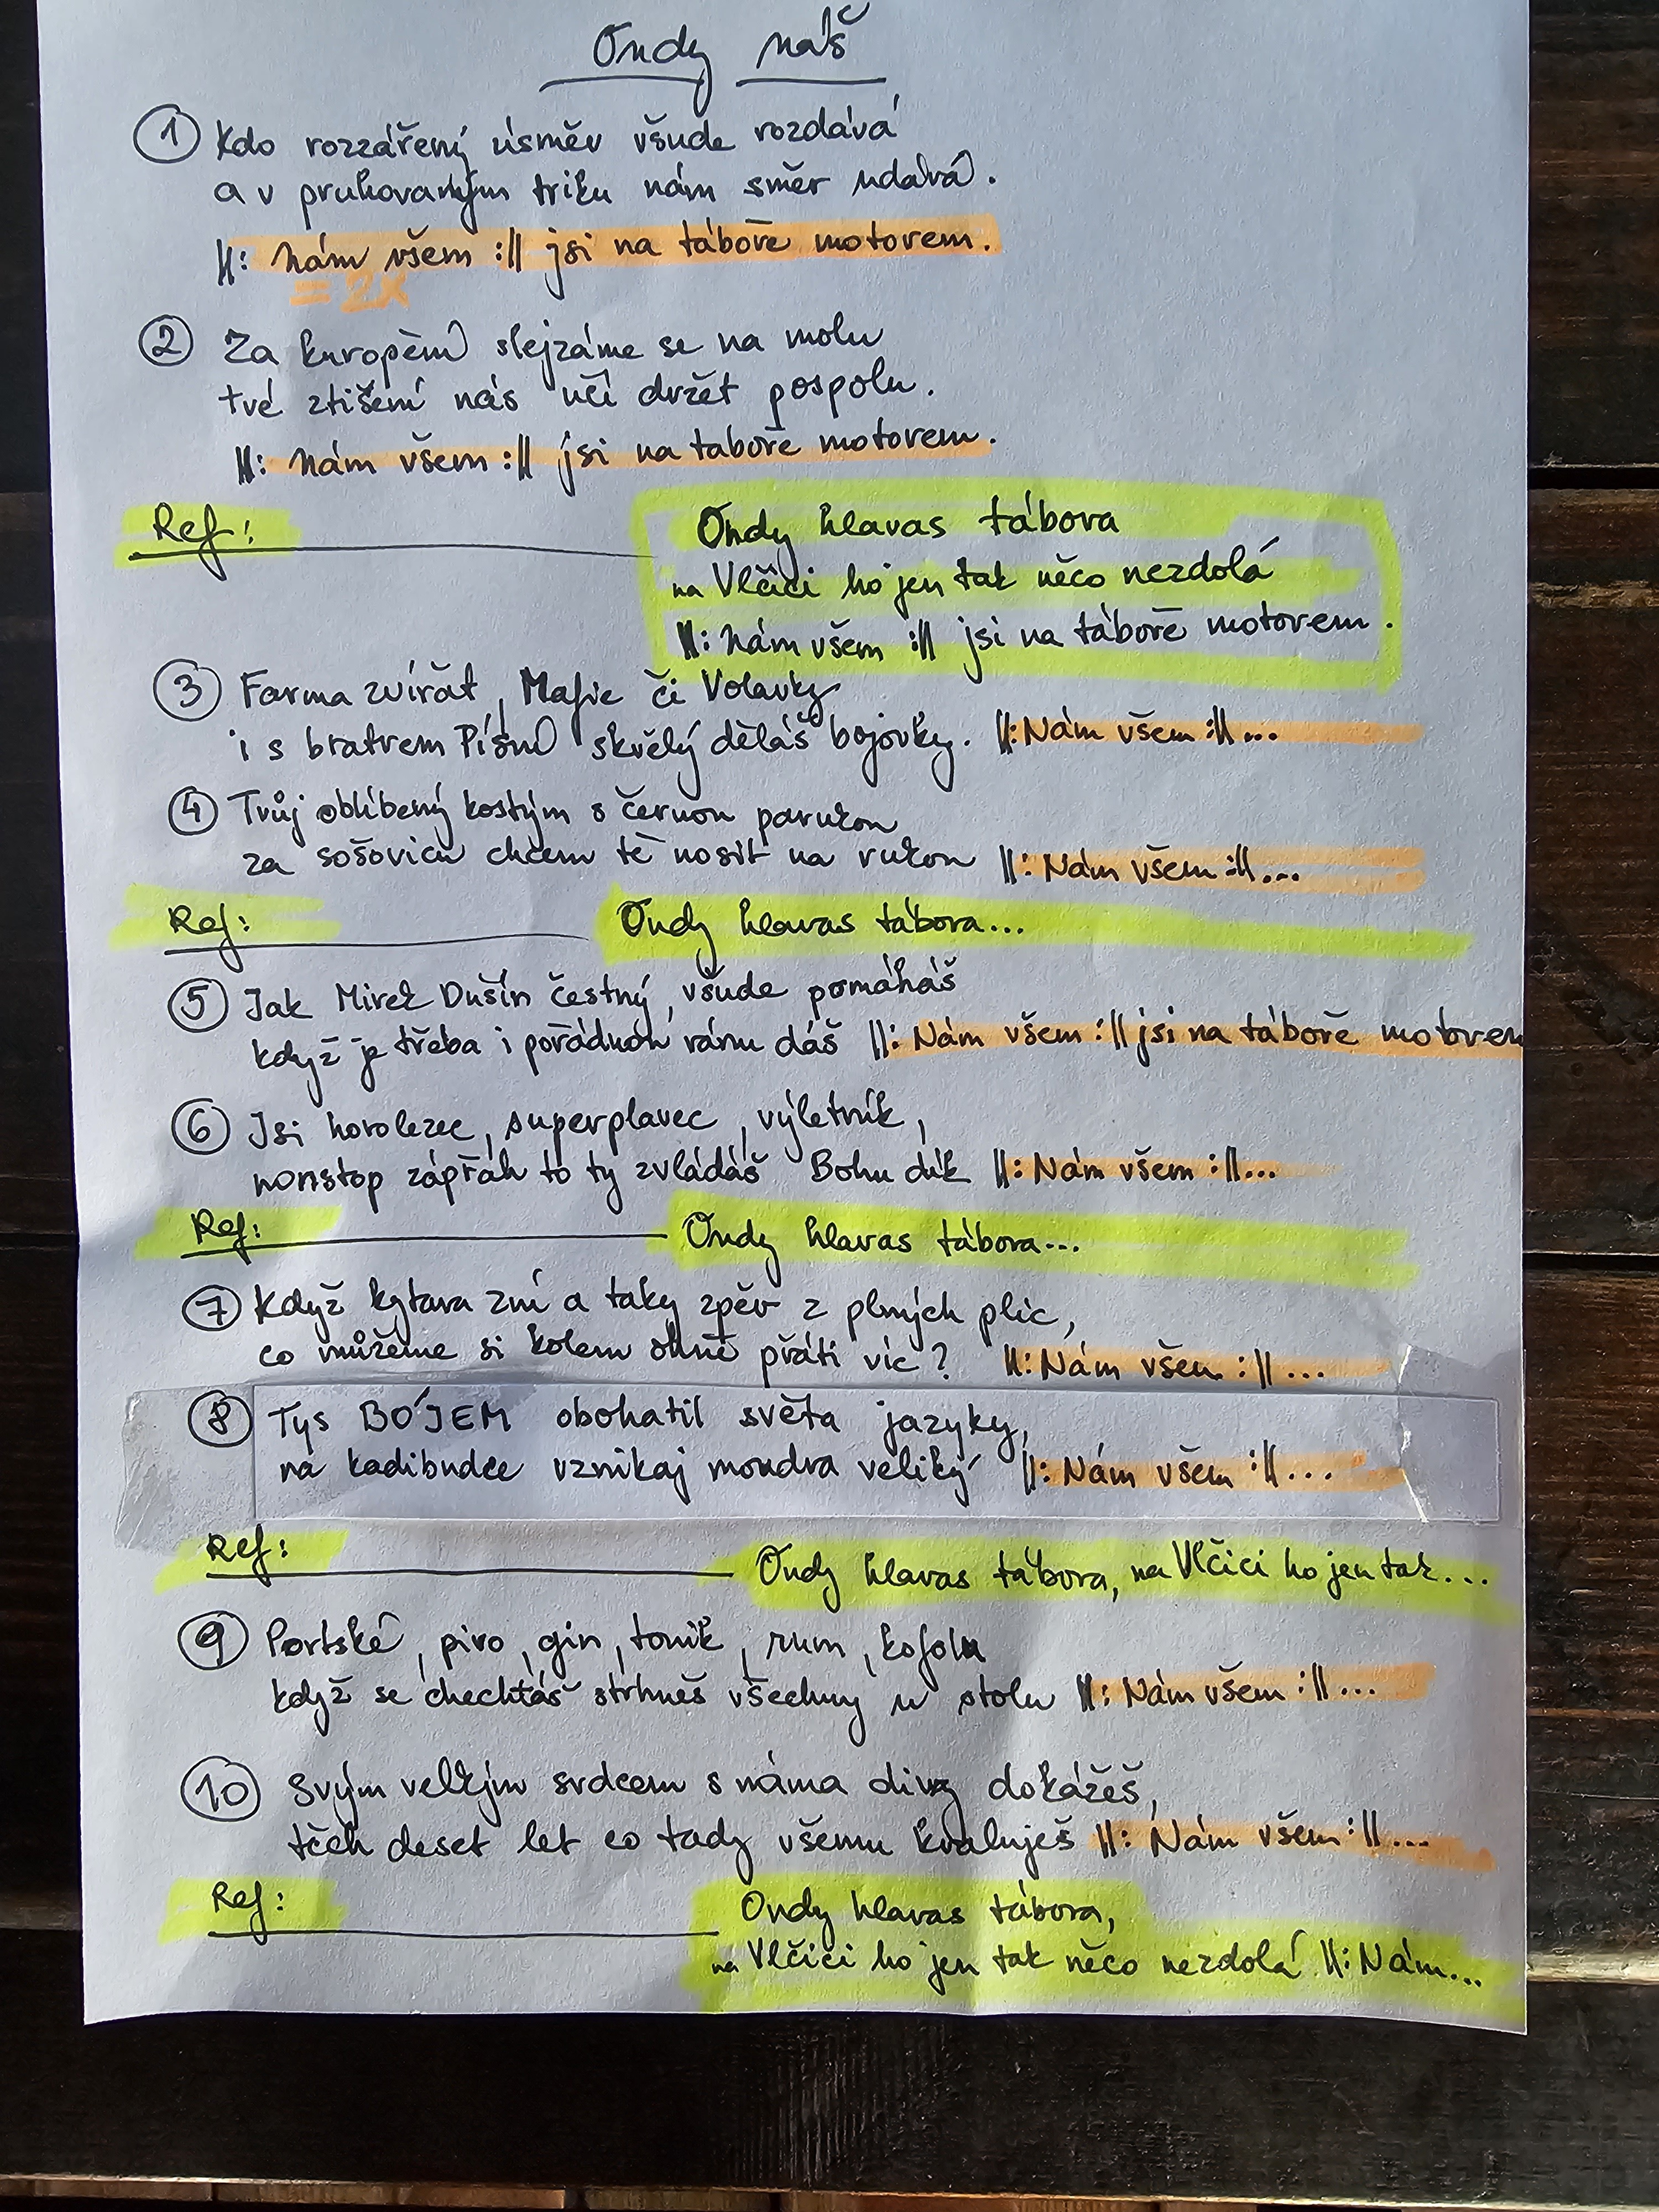 Ondy náš
① Kdo rozzářený úsměv všude rozdává
a v pruhovaným triku nám směr udává.
‖: Nám všem :‖ jsi na táboře motorem.
= 2x
② Za kuropění slejzáme se na molu
tvé ztišení nás učí držet pospolu.
‖: Nám všem :‖ jsi na taboře motorem.
Ref: Ondy hlavas tábora
na Vlčici ho jen tak něco nezdolá
‖: Nám všem :‖ jsi na táboře motorem.
③ Farma zvířat, Mafie či Volavky
i s bratrem Písní skvělý děláš bojovky. ‖: Nám všem :‖...
④ Tvůj oblíbený kostým s černou parukou
za sošovicu chcem tě nosit na rukou ‖: Nám všem :‖...
Ref: Ondy hlavas tábora...
⑤ Jak Mirek Dušín čestný, všude pomáháš
když je třeba i pořádnou ránu dáš ‖: Nám všem :‖ jsi na táboře motorem
⑥ Jsi horolezec, superplavec, výletník,
nonstop zápřah to ty zvládáš Bohu dík ‖: Nám všem :‖...
Ref: Ondy hlavas tábora...
⑦ Když kytara zní a taky zpěv z plných plic,
co můžeme si kolem ohně přáti víc? ‖: Nám všem :‖...
⑧ Tys BÓJEM obohatil světa jazyky,
na kadibudce vznikaj moudra veliký ‖: Nám všem :‖...
Ref: Ondy hlavas tábora, na Vlčici ho jen tak...
⑨ Portské, pivo, gin, tonik, rum, kofolu
když se chechtáš strhneš všechny u stolu ‖: Nám všem :‖...
⑩ Svým velkým srdcem s náma divy dokážeš,
těch deset let co tady všemu kraluješ ‖: Nám všem :‖...
Ref: Ondy hlavas tábora,
na Vlčici ho jen tak něco nezdolá ‖: Nám...